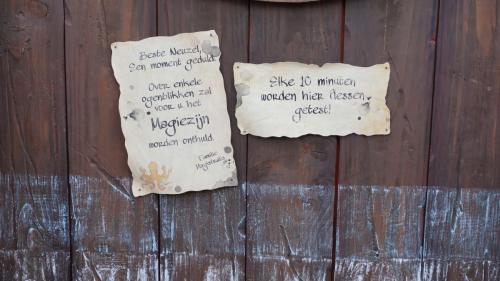 Beste Neuzel,
Een moment geduld.
Over enkele
ogenblikken zal
voor u het
Magiezijn
worden onthuld.
Familie
Elke 10 minuten
worden hier flessen
getest!